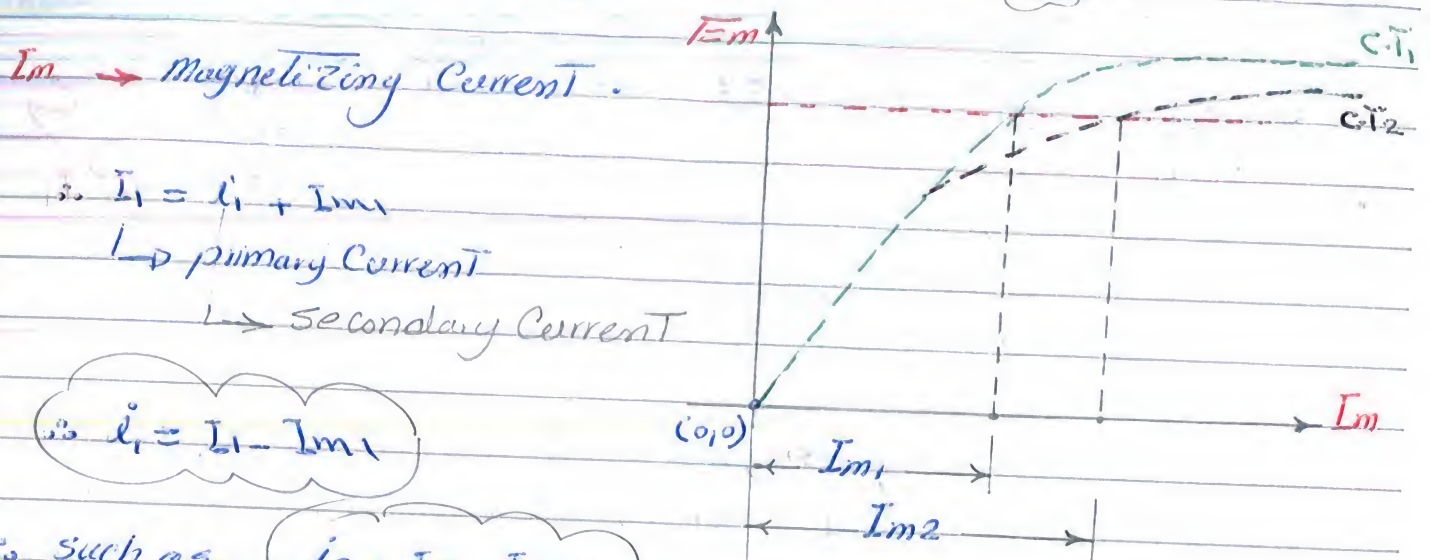 Im → Magnetizing Current.
∴ I1 = i1 + Im1
↳ primary Current
↳ Secondary Current
∴ i1 = I1 - Im1
∴ such as
Em
C.T1
C.T2
(0,0)
Im
Im1
Im2